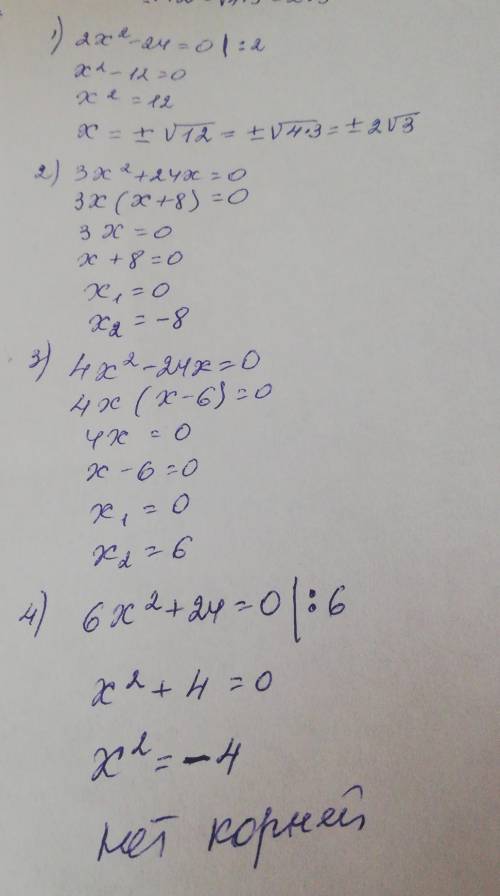 1) 2x² - 24 = 0 | : 2
x² - 12 = 0
x² = 12
x = ± √12 = ± √4·3 = ± 2√3
2) 3x² + 24x = 0
3x (x + 8) = 0
3x = 0
x + 8 = 0
x₁ = 0
x₂ = -8
3) 4x² - 24x = 0
4x (x - 6) = 0
4x = 0
x - 6 = 0
x₁ = 0
x₂ = 6
4) 6x² + 24 = 0 | : 6
x² + 4 = 0
x² = -4
нет корней